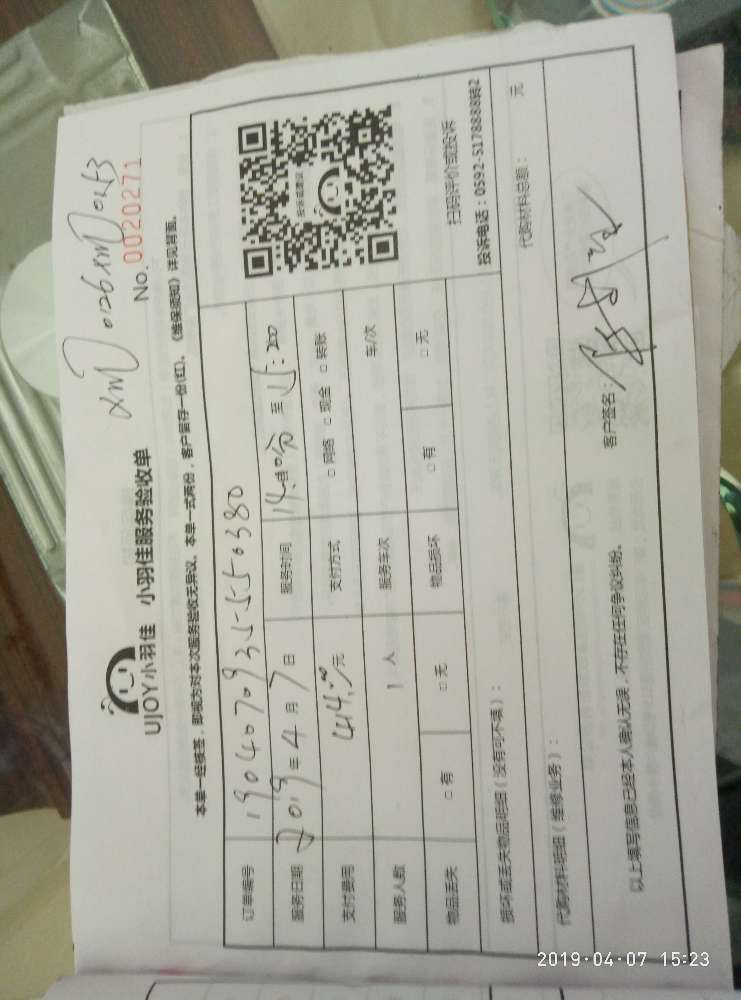 XMD0126XMD0243
UJOY小羽佳 小羽佳服务验收单
No. 0020271
本单一经核签，即视为对本次服务验收无异议。本单一式两份，客户留存一份(红)。《维保须知》详见背面。
订单编号 19040709355550380
服务日期 2019年4月7日 服务时间 14:00分至15:200
支付费用 414.00元 支付方式 □网络 □现金 □转账
服务人数 1人 服务车次 车/次
物品丢失 □有 □无 物品损坏 □有 □无
投诉或建议
扫码评价或投诉
投诉电话：0592-5178888转2
损坏或丢失物品明细（没有可不填）：
代购材料明细（维修业务）： 代购材料总额： 元
以上填写信息已经本人确认无误，不存在任何争议纠纷。 客户签名：
2019-04-07 15:23